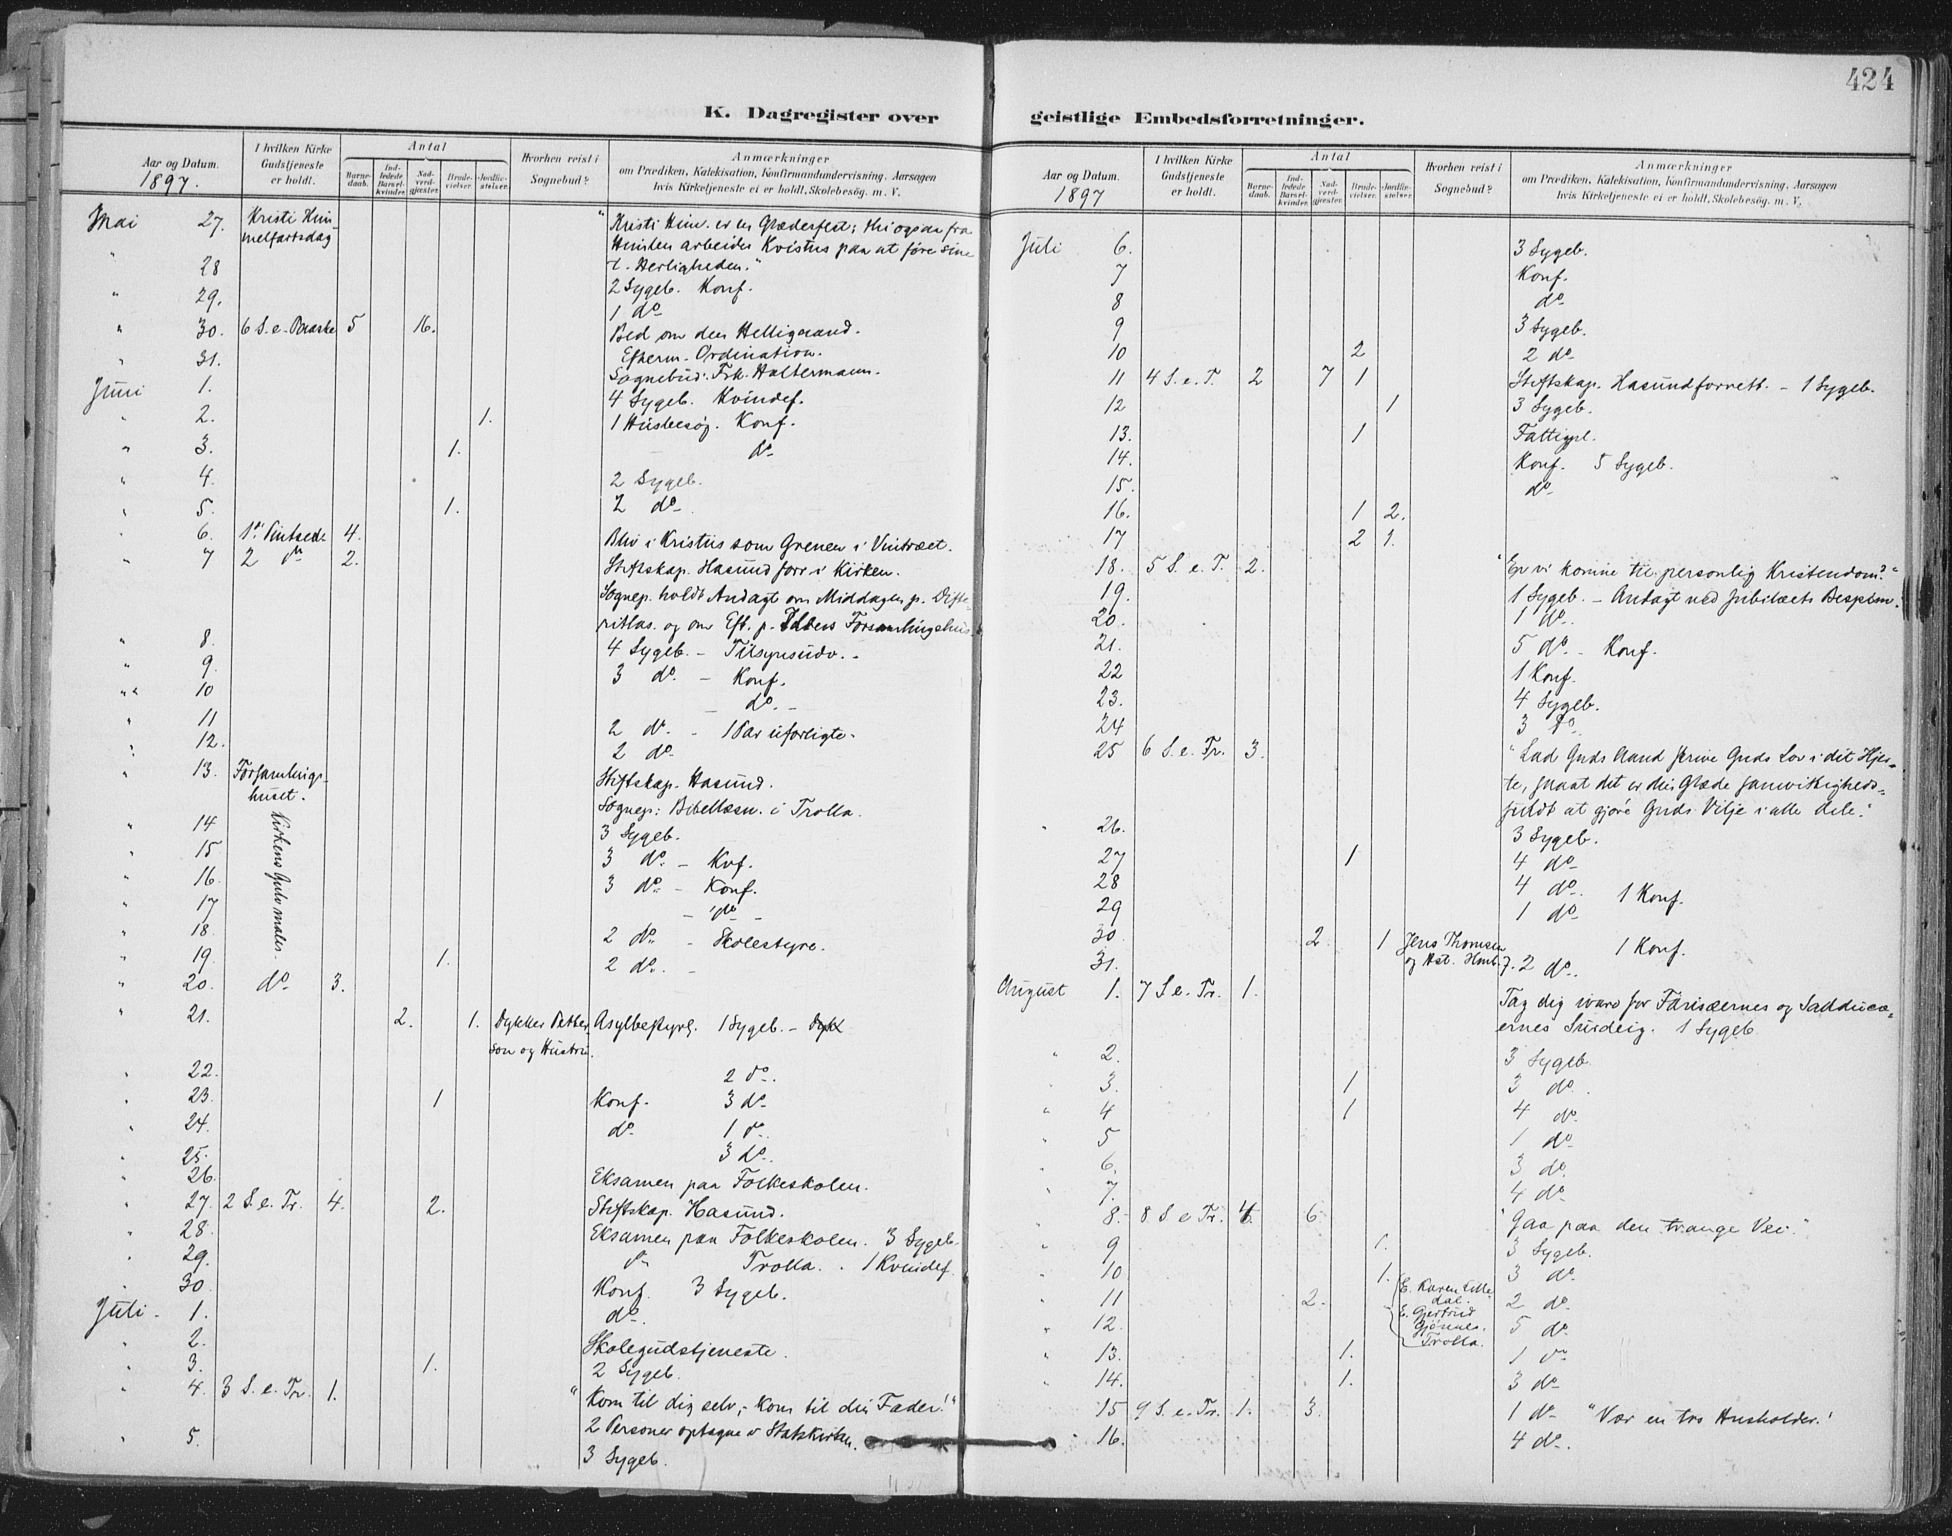 424
K. Dagregister over
geistlige Embedsforretninger.
Aar og Datum.
1897.
I hvilken Kirke
Gudstjeneste
er holdt.
Antal
Barne-
daab.
Ind-
ledede
Barsel-
kvinder.
Nad-
verd-
gjester.
Brude-
vielser.
Jordfæ-
stelser.
Hvorhen reist i
Sognebud?
Anmærkninger
om Prædiken, Katekisation, Konfirmandundervisning, Aarsagen
hvis Kirketjeneste ei er holdt, Skolebesøg. m. V.
Mai 27. Kristi Him- "Kristi Him. er en Glædesfest; thi ogsaa fra
melfartsdag Himlen arbeider Kristus paa at føre sine
" 28 t. Herligheden."
" 29. 2 Sygeb. Konf.
1 do
" 30. 6 S. e. Paaske 5 16. Bed om den Helligaand.
" 31. Efterm. Ordination.
Sognebud: Frk. Haltermann.
Juni 1. 4 Sygeb. Kvindef.
" 2. 1. 1 Husbesøg. Konf.
" 3. 1. do
" 4. 2 Sygeb.
" 5. 1. 2 do
" 6. 1ste Pintsed. 4. Bliv i Kristus som Grenen i Vintræet.
" 7 2 do 2. Stiftskap. Hasund forr. i Kirken.
Sognep. holdt Andagt om Middagen p. Difte-
ritlas. og om Eft. p. Forsamlingshus.
" 8. 4 Sygeb. – Tilsynsudv. –
" 9. 3 do. – Konf.
" 10 – do. –
" 11 2 do. – 1 Par uforligte.
" 12. 2 do.
" 13. Forsamlings- Stiftskap. Hasund.
huset. Sognep: Bibellæsn. i Trolla.
" 14 Kirkens Gulv males. 3 Sygeb.
" 15 3 do. – Kof.
" 16. 3 do – Konf.
" 17 – do –
" 18. 2 do. – Skolestyre.
" 19. 1. 2 do. –
" 20. do. 3.
" 21. 2. 1. Dykker Petter- Asylbestyr. 1 Sygeb. – Dykk
son og Hustru.
" 22. 2 do.
" 23. 1 Konf. 3 do
" 24. do. 1 do.
" 25. 3 do.
" 26. Eksamen paa Folkeskolen.
" 27. 2 S. e. Tr. 4. 2. Stiftskap. Hasund.
" 28. Eksamen paa Folkeskolen. 3 Sygeb.
" 29. do Trolla. . 1 Kvindef.
" 30. Konf. 3 Sygeb.
Juli. 1. do.
" 2. Skolegudstjeneste.
" 3. 1. 2 Sygeb.
" 4. 3 S. e. Tr. 1. "Kom til dig selv, – kom til din Fader!"
2 Personer optagne i Statskirken.
" 5. 3 Sygeb.
Aar og Datum.
1897
I hvilken Kirke
Gudstjeneste
er holdt.
Antal
Barne-
daab.
Ind-
ledede
Barsel-
kvinder.
Nad-
verd-
gjester.
Brude-
vielser.
Jordfæ-
stelser.
Hvorhen reist i
Sognebud?
Anmærkninger
om Prædiken, Katekisation, Konfirmandundervisning, Aarsagen
hvis Kirketjeneste ei er holdt, Skolebesøg. m. V.
Juli 6. 3 Sygeb.
7 Konf.
8 do
9 3 Sygeb.
10 2 2 do
11 4 S. e. T. 2 7 1 Stiftskap. Hasund forrett. – 1 Sygeb.
12 1 3 Sygeb.
13. 1 Fattigpl.
14. Konf. 5 Sygeb.
15. do
16. 1 2.
17 2 1.
18. 5 S. e. T. 2. "Er vi komne til personlig Kristendom?"
19. 1 Sygeb. – Andagt ved Jubilæets
20. 1 do.
21. 5 do. – Konf.
22 1 Konf.
23. 4 Sygeb.
24 3 do.
25 6 S. e. Tr. 3. "Lad Guds Aand skrive Guds Lov i dit Hjer-
te, saaat det er din Glæde samvittigheds-
fuldt at gjøre Guds Vilje i alle dele."
" 26. 3 Sygeb.
27 1 4 do
28 4 do. 1 Konf.
29 1 do
30 2 1 Jens Thomsen 1 Konf.
31. 2 do.
August 1. 7 S. e. Tr. 1. Tag dig ivare for Farisæernes og Sadducæ-
ernes Surdeig. 1 Sygeb.
" 2. 3 Sygeb.
" 3. 1 3 do.
" 4 1 4 do.
" 5 1 do
" 6. 3 do
" 7. 4 do
" 8. 8 S e Tr. 4 6 "Gaa paa den trange Vei."
" 9 1. 3 Sygeb.
" 10 1. 3 do.
" 11 2. E. Karen Lille- 2 do.
dal.
" 12. E. Gjertrud 5 do
Gjønnes.
Trolla.
" 13. 1. 1 do
" 14. 1. 3 do
" 15 9 S. e. Tr. 1. 3. 1 do "Vær en tro Husholder!
" 16. 4 do.